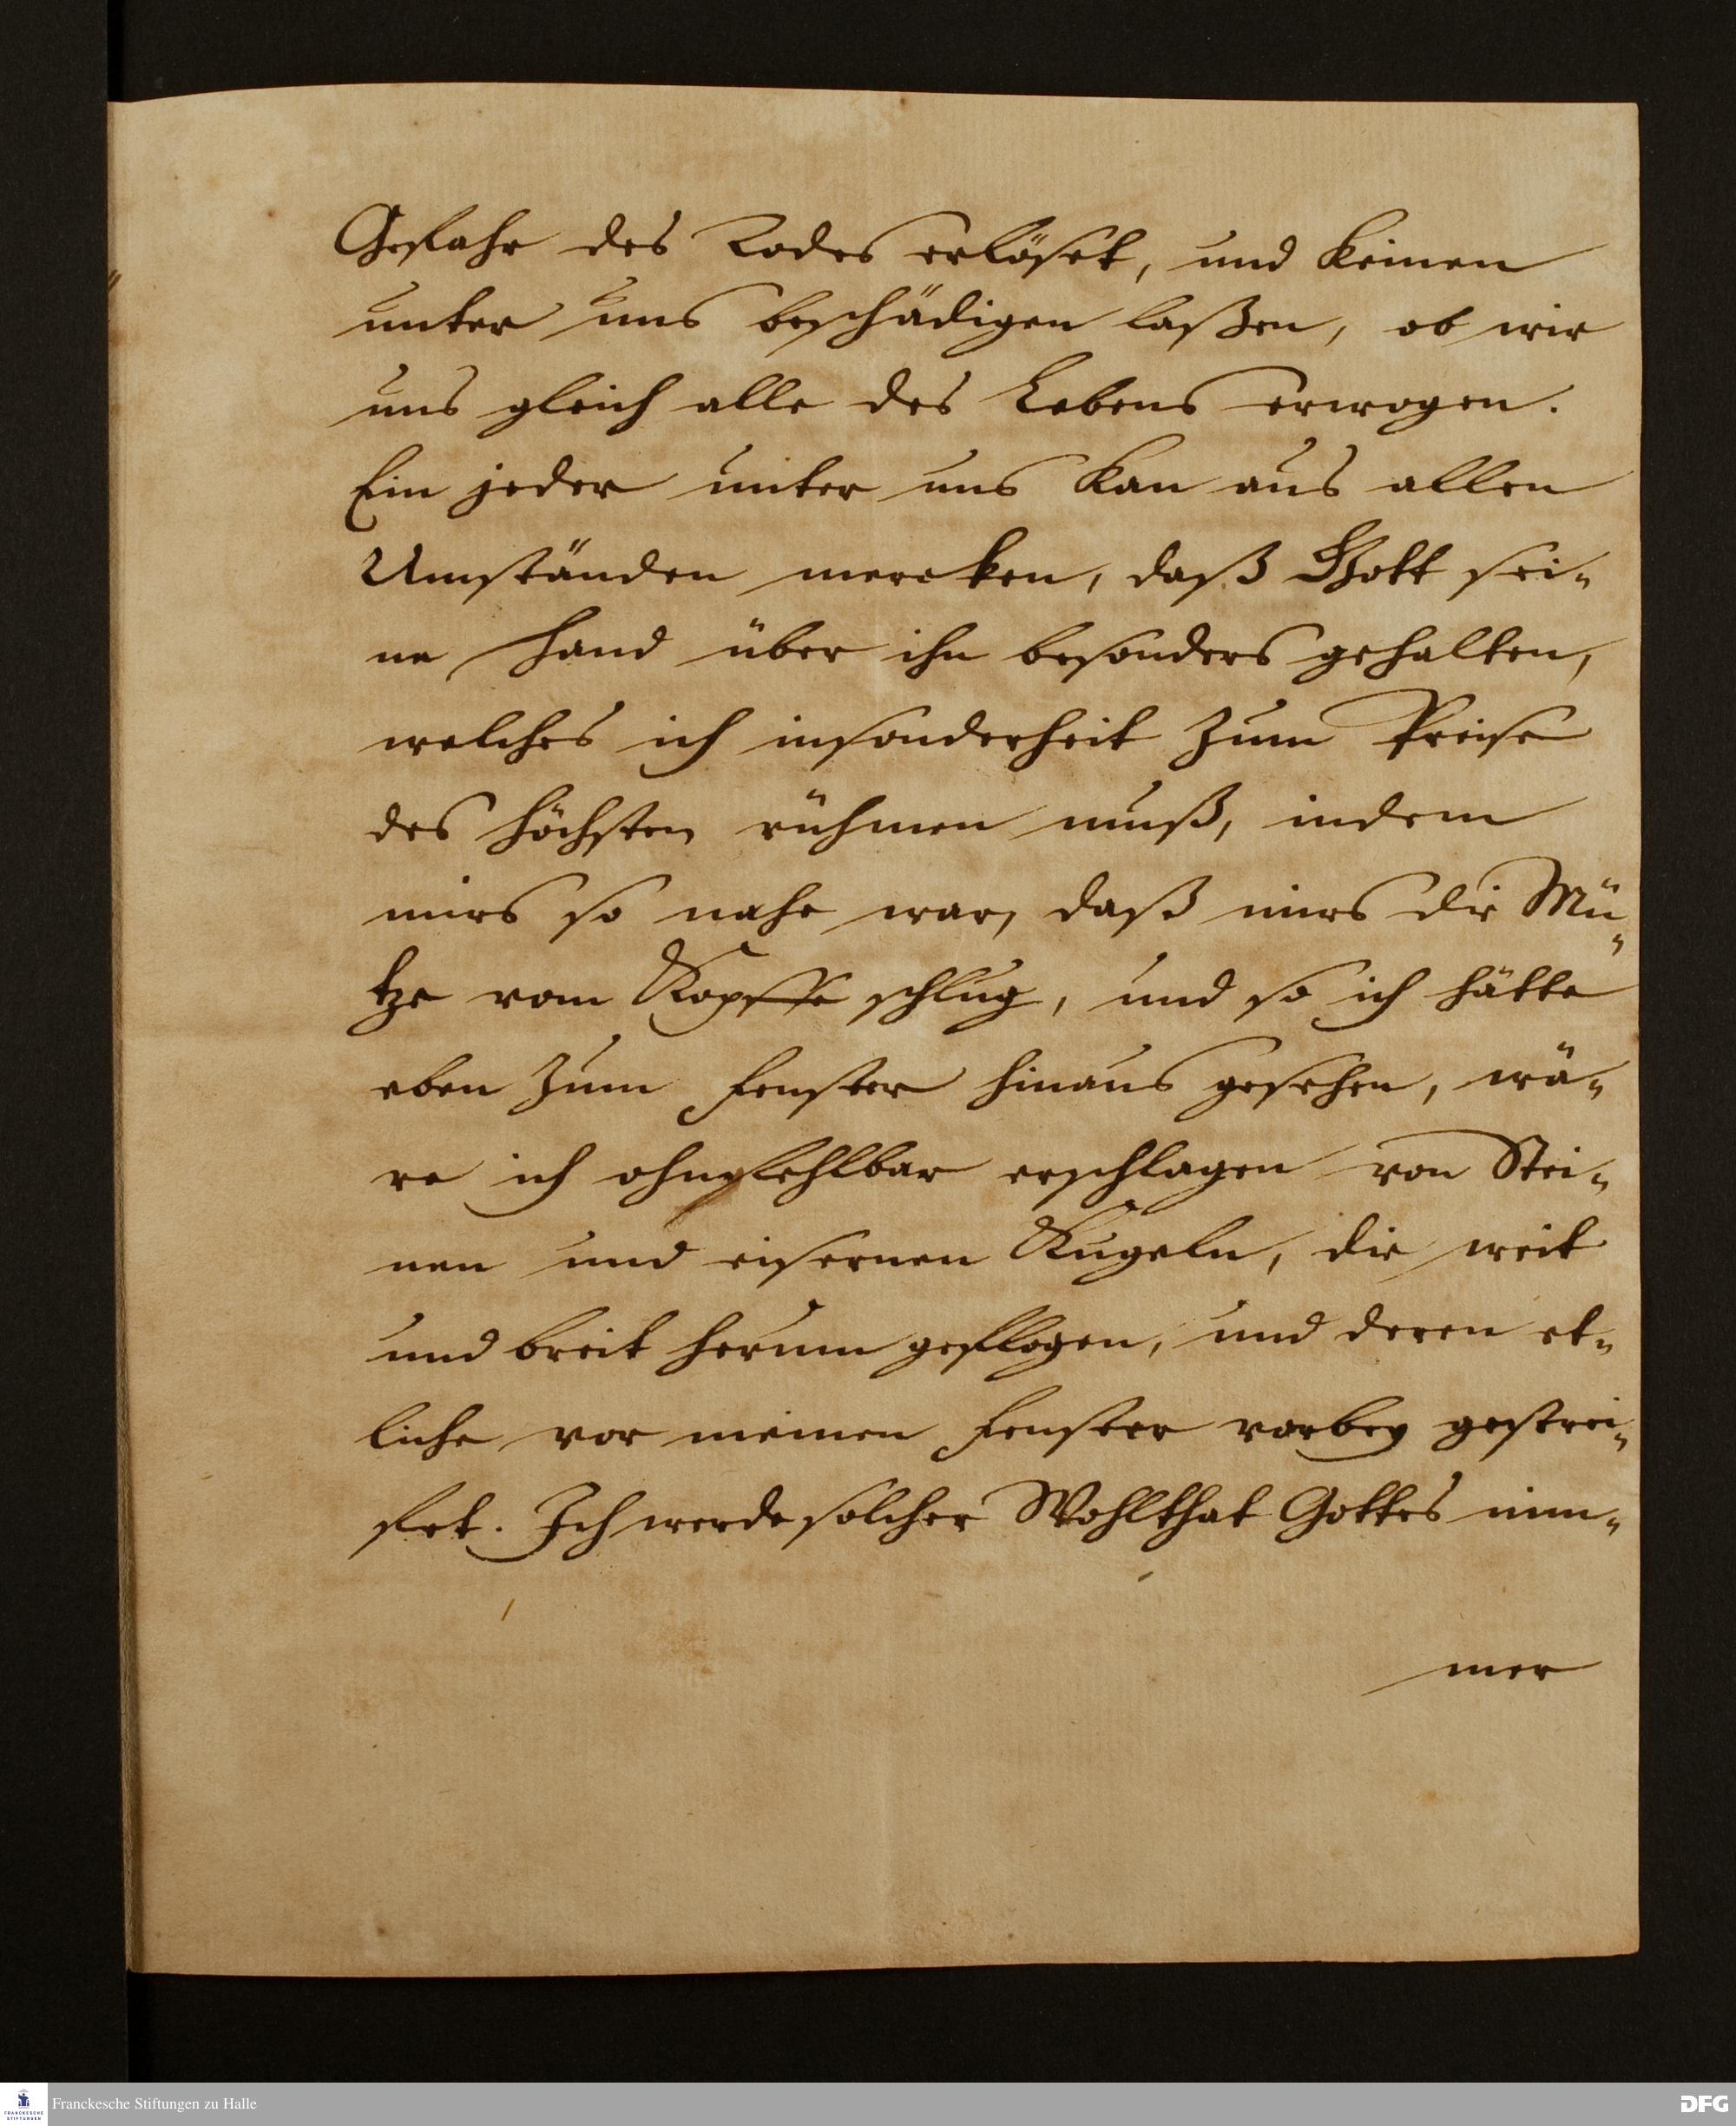 Gefahr des Todes erlöset, und keinen
unter uns beschädigen laßen, ob wir
uns gleich alle des Lebens erwogen.
Ein jeder unter uns kan aus allen
Umständen mercken, daß Gott sei-
ne Hand über ihn besonders gehalten,
welches ich insonderheit zum Preise
des Höchsten rühmen muß, indem
mirs so nahe war, daß mirs die Mü-
tze vom Kopffe schlug, und so ich hätte
eben zum Fenster hinaus gesehen, wä-
re ich ohnfehlbar erschlagen von Stei-
nen und eisernen Kugeln, die weit
und breit herum geflogen, und deren et-
liche vor meinen Fenster vorbey gestrei-
fet. Ich werde solcher Wohlthat Gottes nim-
mer
Franckesche Stiftungen zu Halle
FRANCKESCHE
STIFTUNGEN
DFG